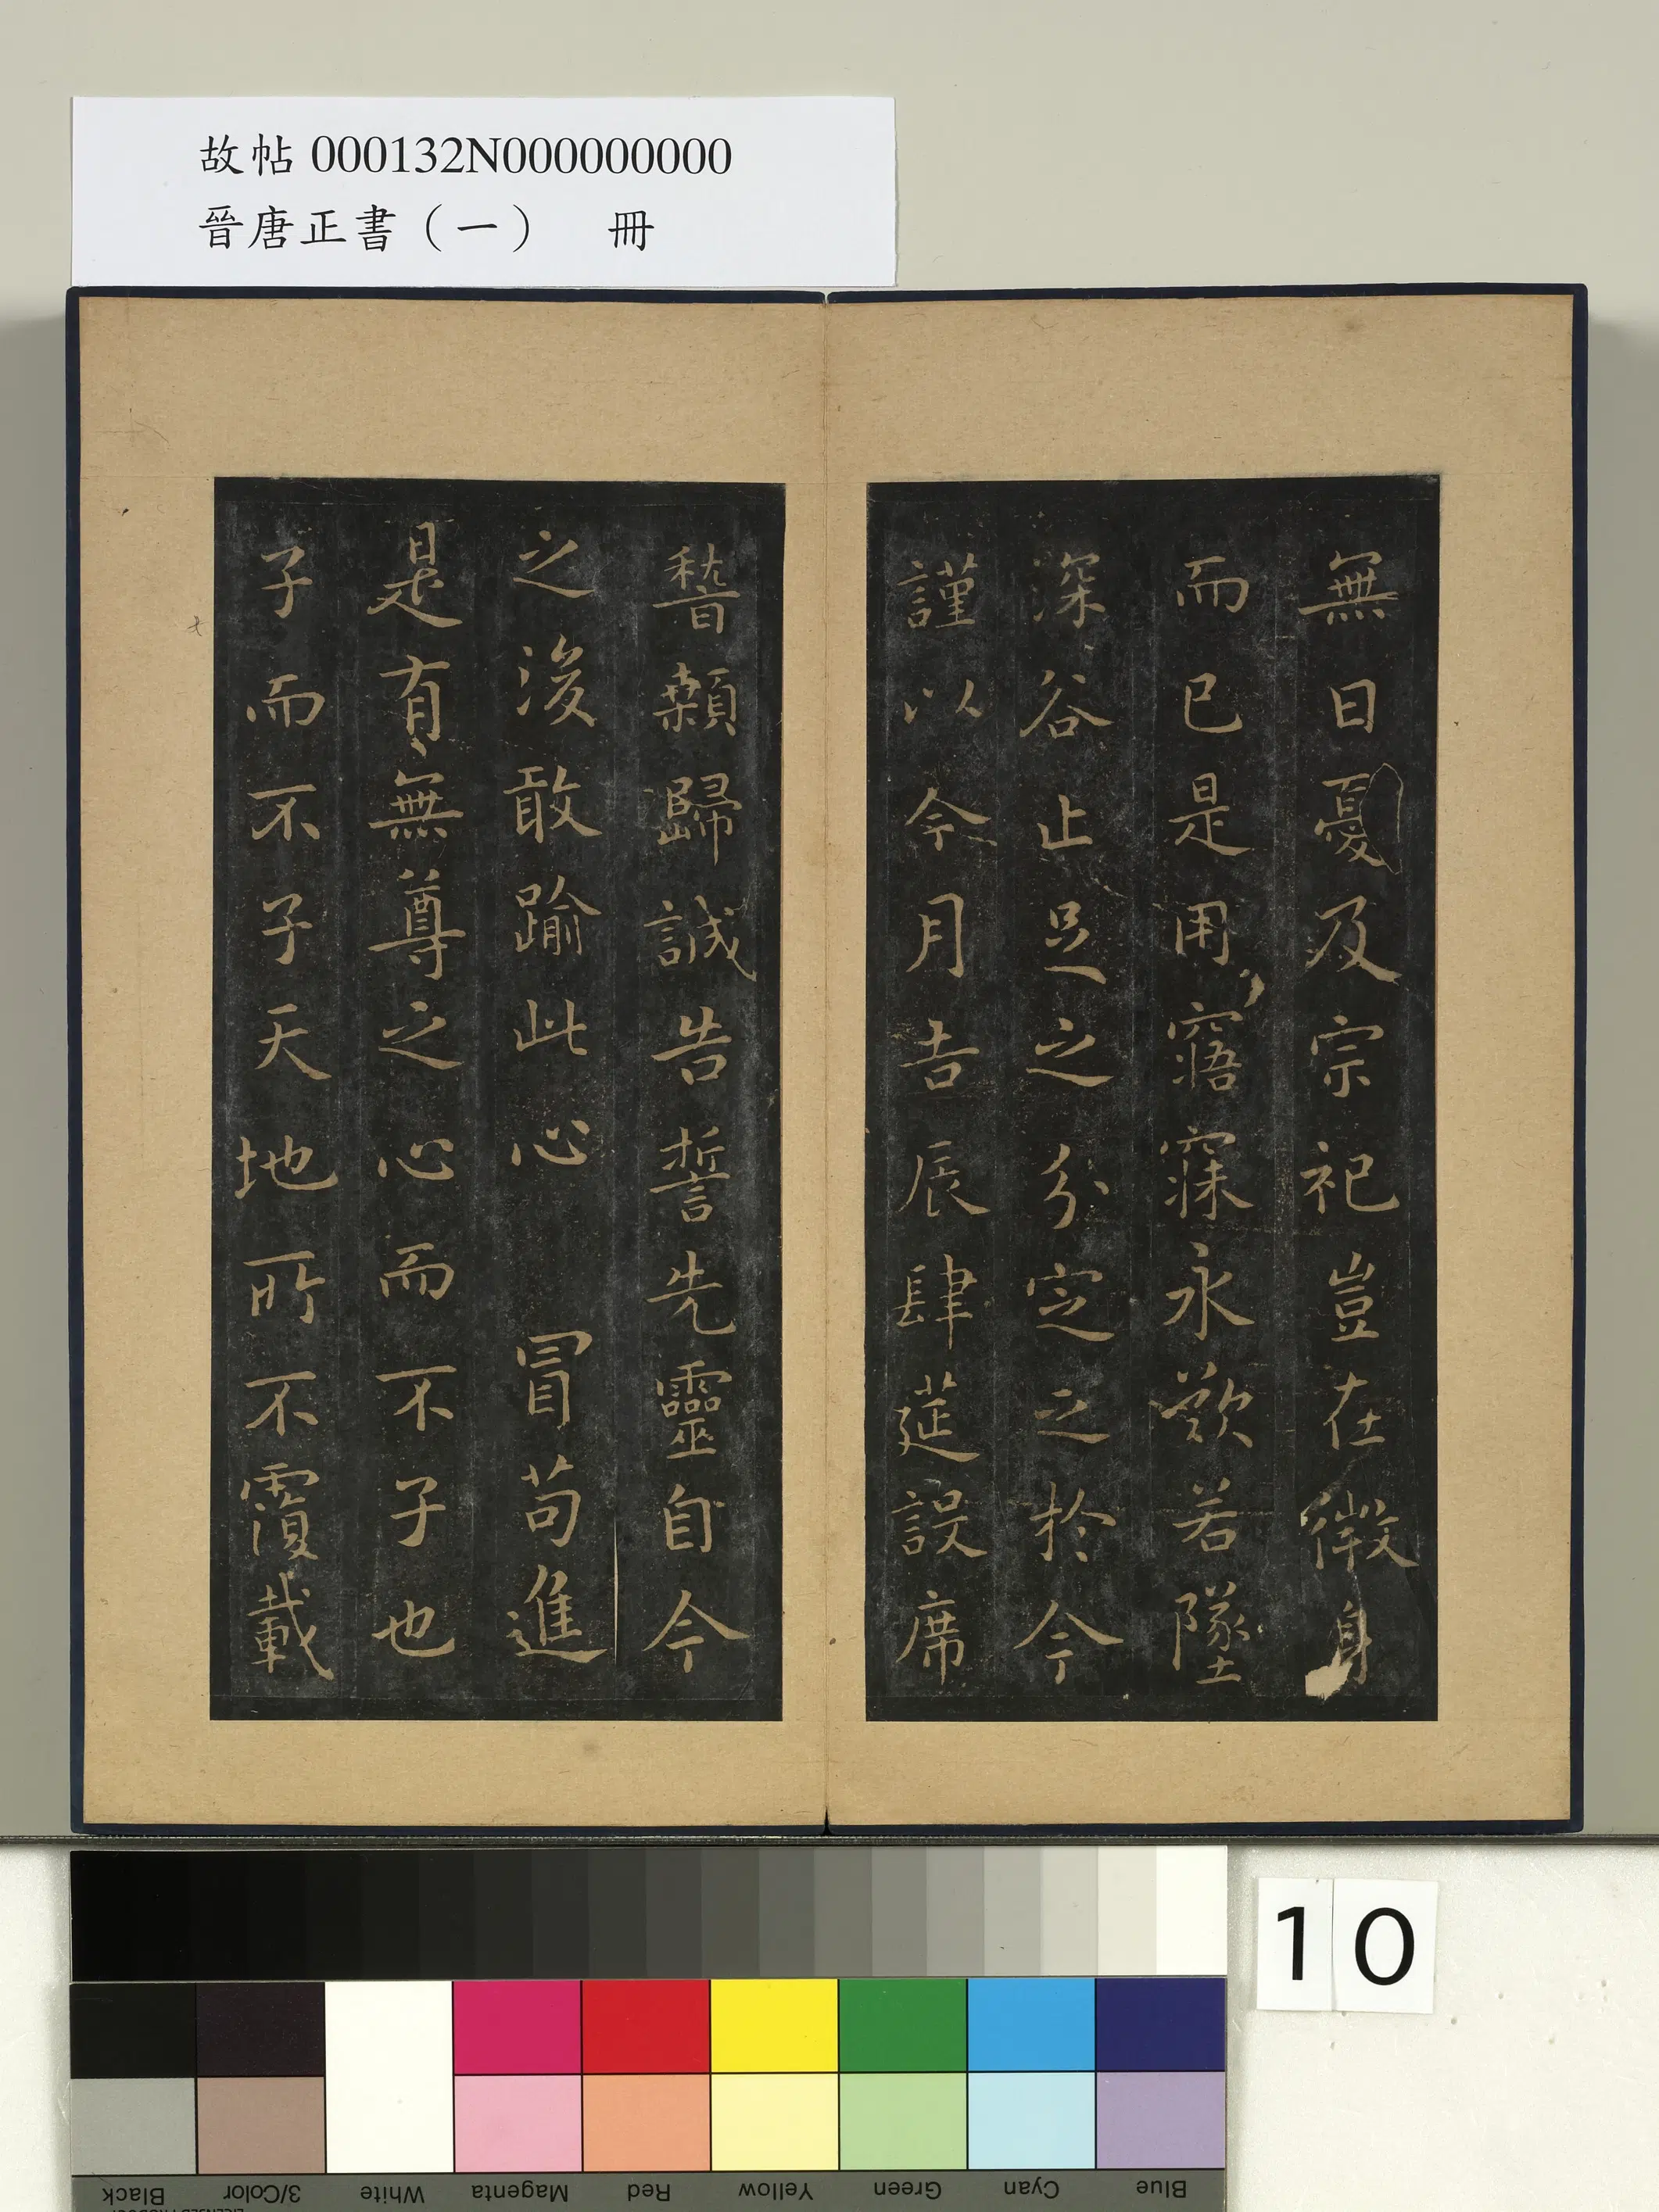 故帖 000132N000000000
晉唐正書（一） 冊
無日憂及宗祀豈在微身
而已是用寤寐永歎若墜
深谷止足之分定之於今
謹以今月吉辰肆莚設席
稽顙歸誠告誓先靈自今
之後敢踰此心 冒苟進
是有無尊之心而不子也
子而不子天地所不覆載
10
Black
3/Color
White
Magenta
Red
Yellow
Green
Cyan
Blue